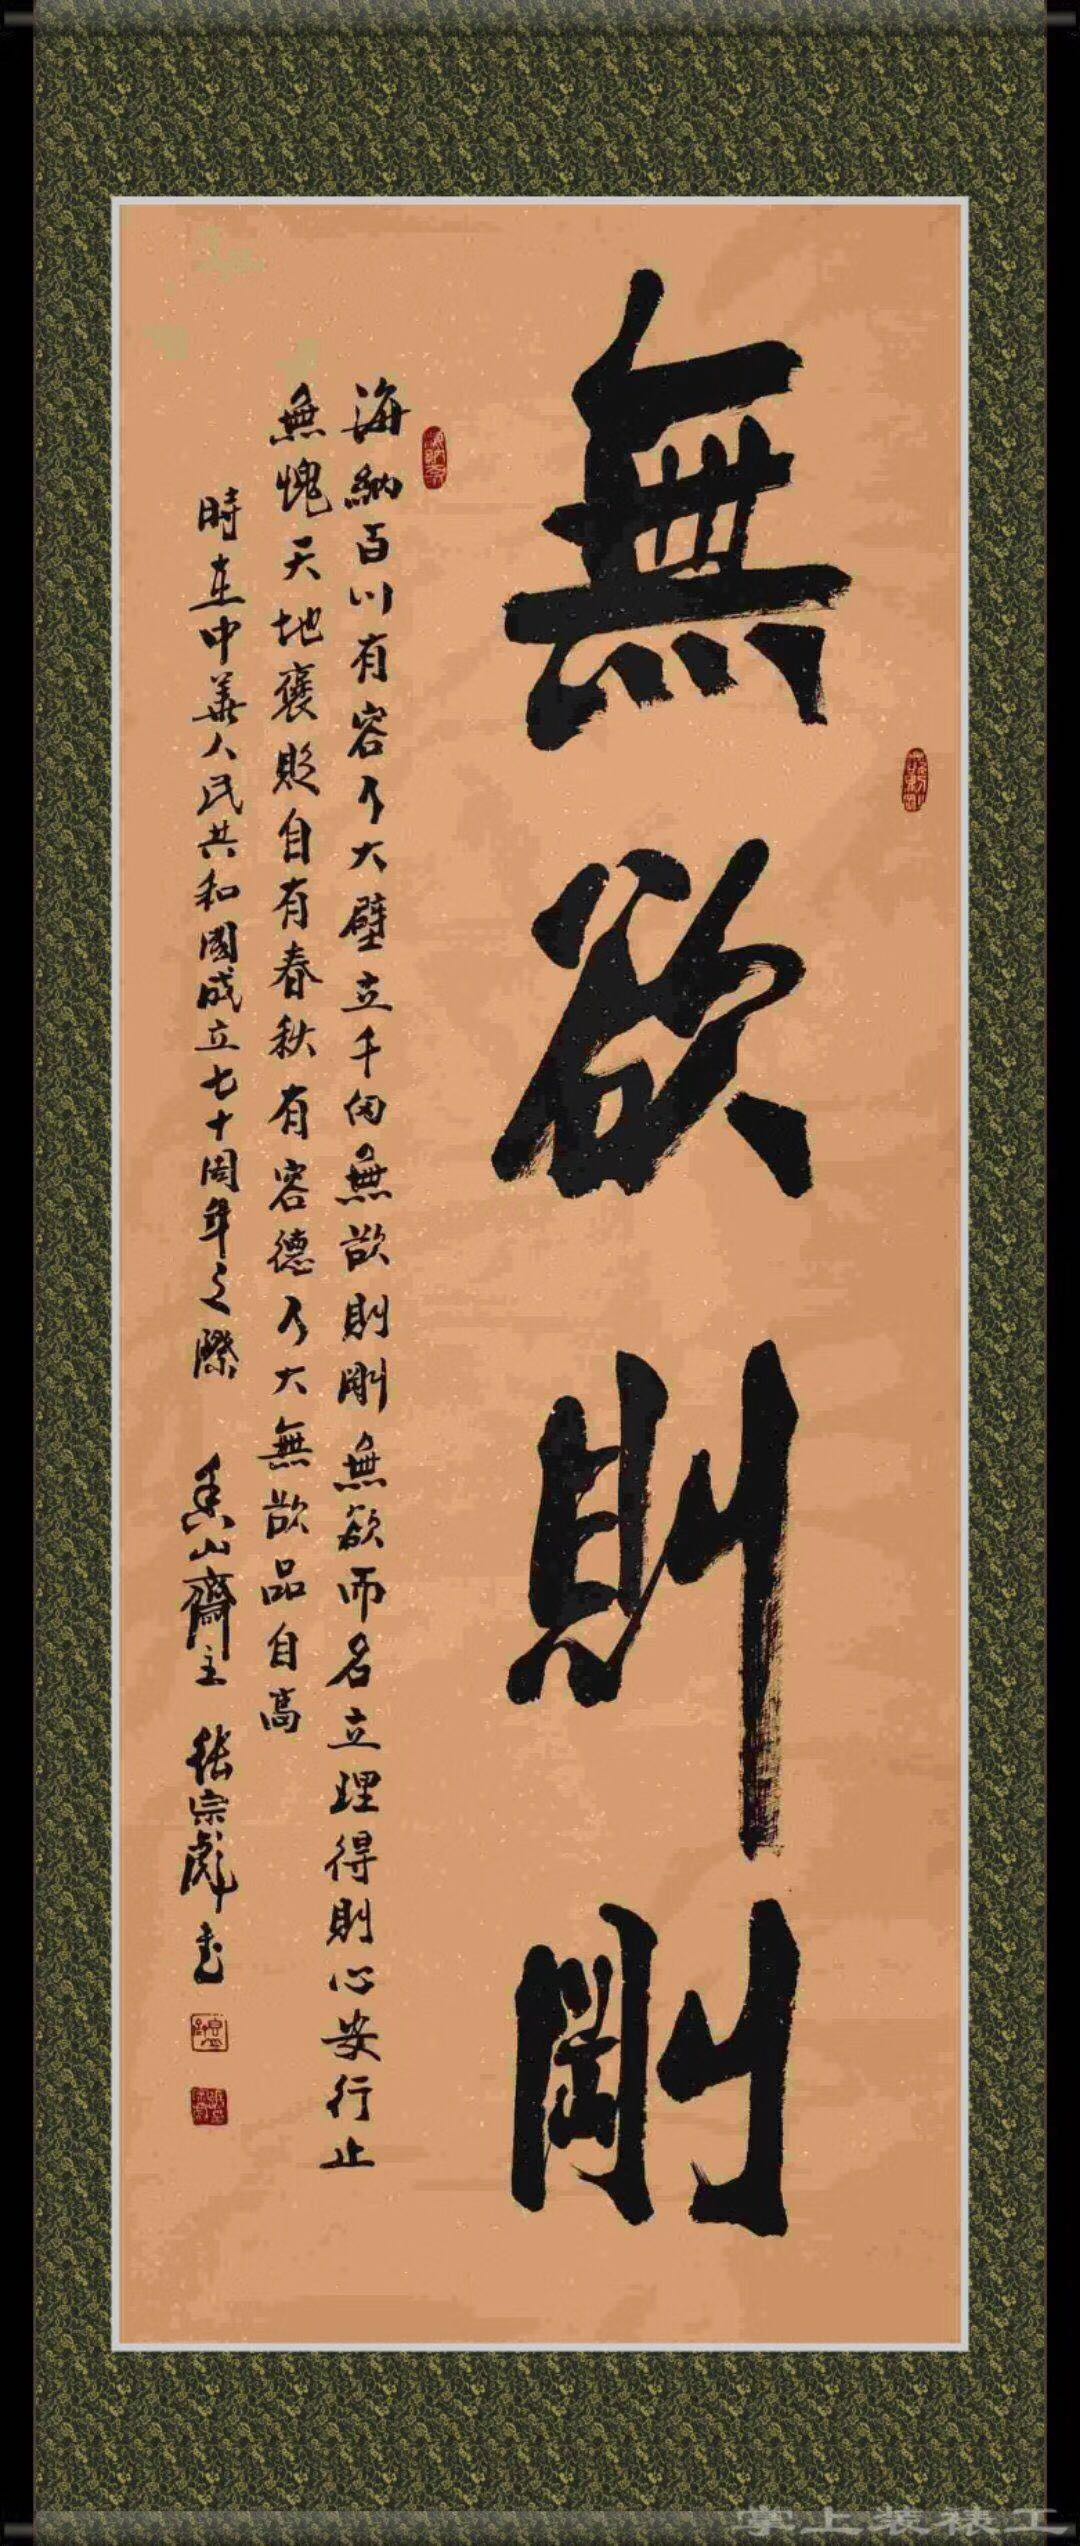 無欲則剛
海納百川有容乃大壁立千仞無欲則剛無欲而名立理得則心安行止
無愧天地褒貶自有春秋有容德乃大無欲品自高
時在中華人民共和國成立七十周年之際 香山齋主 張宗彪書
掌上装裱工